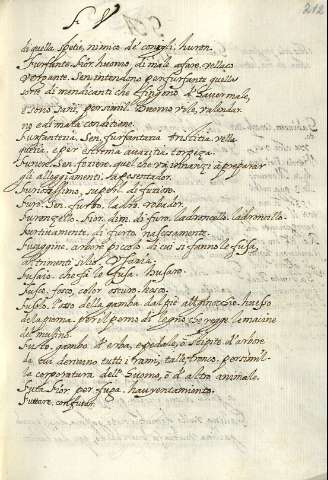 F V
212
di quella spetie, nimico de' conigli, huron.
Furfante. Fior. huomo, di male afare, vellaco
verpante. Sen. intendono per furfante quella
sorte di mendicanti che si fingono
e sono sani, per simil. huomo vile,
no e di mala conditione.
Furfanteria. Sen. furfantaria tristitia. vella
queria, e per estrema avaritia
Furiere. Sen. foriere, quel che va innanzi à preparar
gli alloggiamenti. Aposentador.
superl. di furioso.
Furo. Sen. furbo, ladro. robador.
Furoncello. Fior. dim. di furo. ladroncello. ladronsillo.
Furtivamente. di furto, nascosamente.
Fusaggine, arboro piccolo di cui si fanno le fusa,
altrimenti silio.
Fusaio. che fà le fusa. husero.
Fusco. fosco, color scuro. hosco.
Fusolo. l'osso della gamba dal piè al ginocchio. huesso
della pierna. per el perno di legno, che regge le macine
del mulino.
Fusto. gambo d'erba, e pedale, ò stipite d'arbore
da cui derivano tutti i rami, tallo, tronco. per simil.
la corporatura dell' huomo, ò d'altro animale.
Futa. Fior. per fuga. hauyentamiento.
Futtare. confutar.